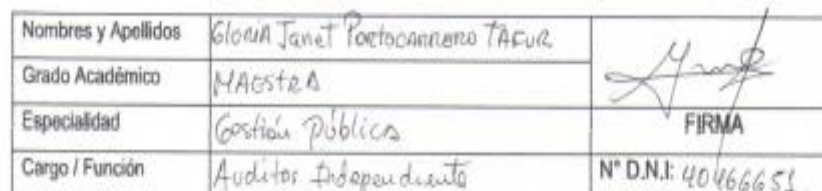 Nombres y Apellidos GloriA Janet Portocarrero TAFUR
Grado Académico MAestrA
Especialidad Gestión Pública
FIRMA
Cargo / Función Auditor Independiente
N° D.N.I: 40466651.